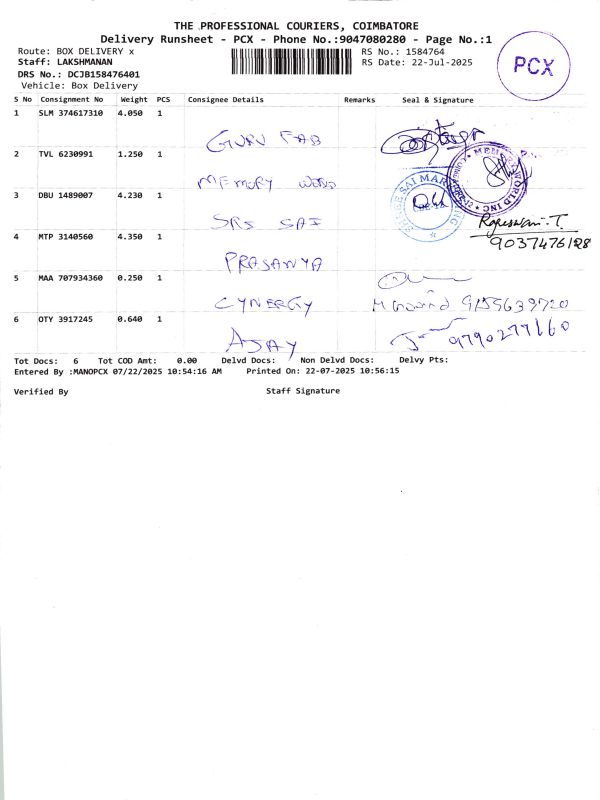 THE PROFESSIONAL COURIERS, COIMBATORE
Delivery Runsheet - PCX - Phone No.:9047080280 - Page No.:1
Route: BOX DELIVERY x
RS No.: 1584764
Staff: LAKSHMANAN
RS Date: 22-Jul-2025
DRS No.: DCJB158476401
Vehicle: Box Delivery
PCX
S No Consignment No Weight PCS Consignee Details Remarks Seal & Signature
1 SLM 374617310 4.050 1
GURU FAB
2 TVL 6230991 1.250 1
MEMORY WORD
3 DBU 1489007 4.230 1
SRS SAI
Rajeswari. T.
4 MTP 3140560 4.350 1
9037476188
PRASANYA
5 MAA 707934360 0.250 1
CYNERGY
9155639720
6 OTY 3917245 0.640 1
AJAY
9790277160
Tot Docs: 6 Tot COD Amt: 0.00 Delvd Docs: Non Delvd Docs: Delvy Pts:
Entered By :MANOPCX 07/22/2025 10:54:16 AM Printed On: 22-07-2025 10:56:15
Verified By Staff Signature